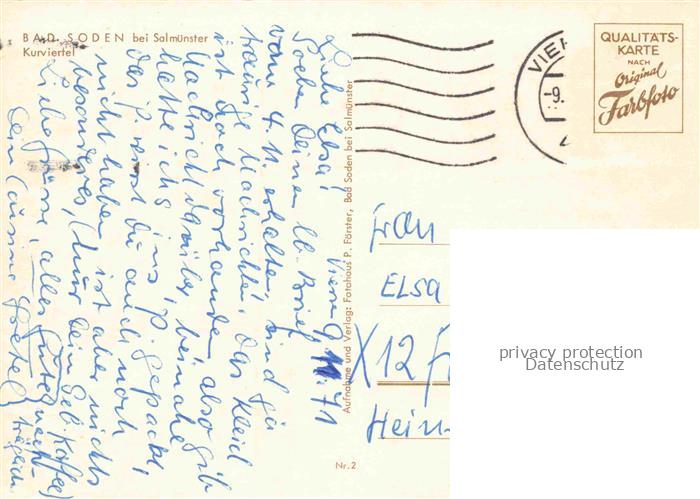 BAD SODEN bei Salmünster
Kurviertel
QUALITÄTS-
KARTE
NACH
Original
Farbfoto
VIER
-9.
Aufnahme und Verlag: Fotohaus P. Förster, Bad Soden bei Salmünster
Nr. 2
Viersen 9. 11. 71
Liebe Elsa!
Soeben Deinen Brief
vom 4. 11 erhalten, sind ja
traurige Nachrichten, das Kleid
ist doch vorhanden, also gib
Nachricht darüber, beinahe
hätte ich's ins P. gepackt,
das P. wirst Du auch noch
nicht haben, ist aber nichts
besonderes, (nur bei Geb. Kaffee)
Liebe Grüsse, alles Gute
nach-
träglich
Frau
ELSA
X12
Hein
privacy protection
Datenschutz